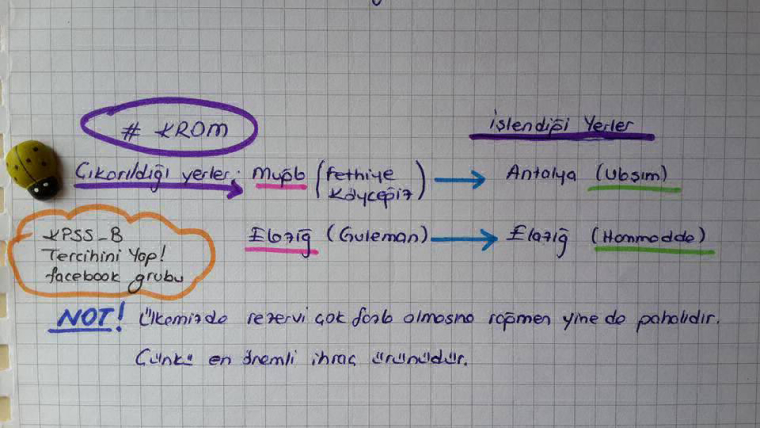 # KROM
İşlendiği Yerler
Çıkarıldığı yerler: Muğla (Fethiye Köyceğiz) → Antalya (Ulaşım)
Elazığ (Guleman) → Elazığ (Hammadde)
KPSS_B
Tercihini Yap!
facebook grubu
NOT! Ülkemizde rezervi çok fazla olmasına rağmen yine de pahalıdır.
Çünkü en önemli ihraç ürünüdür.